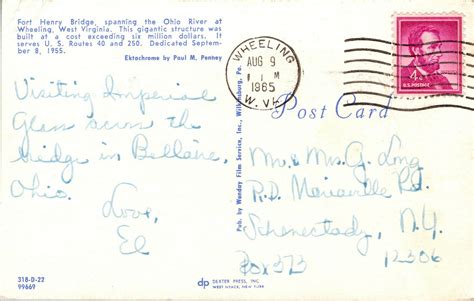 Fort Henry Bridge, spanning the Ohio River at
Wheeling, West Virginia. This gigantic structure was
built at a cost exceeding six million dollars. It
serves U. S. Routes 40 and 250. Dedicated Septem-
ber 8, 1955.
Ektachrome by Paul M. Penney
Visiting Imperial
Glass across the
bridge in Bellaire,
Ohio.
Love,
El
318-D-22
99669
Pub. by Wanday Film Service, Inc., Williamsburg, Pa.
DEXTER PRESS, INC.
WEST NYACK, NEW YORK
WHEELING
AUG 9
1 PM
1965
W. VA.
4¢
U.S. POSTAGE
Post Card
Mr. & Mrs. G. Long
R.D. Mariaville Rd.
Schenectady, N.Y.
Box 373 12306